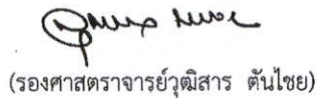 (รองศาสตราจารย์วุฒิสาร ตันไชย)